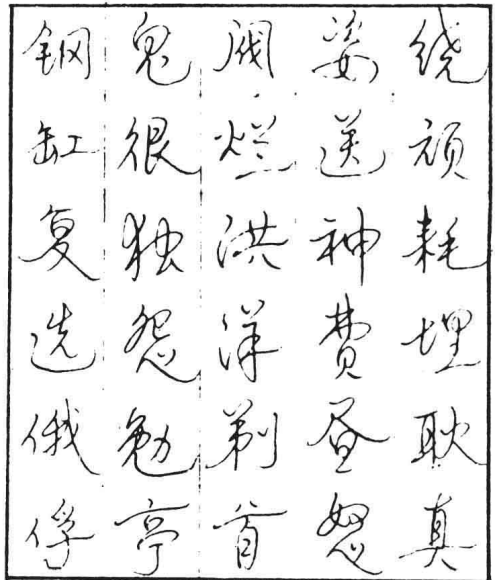 绕顽耗埋耿真
姿送神费昼怒
阀烂洪洋剃首
鬼很独怨勉亭
钢缸复选俄俘